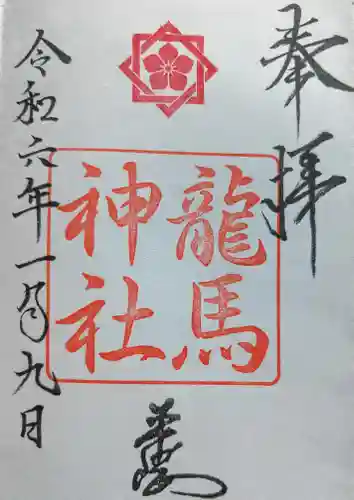 奉拝
龍馬
神社
令和六年一月九日